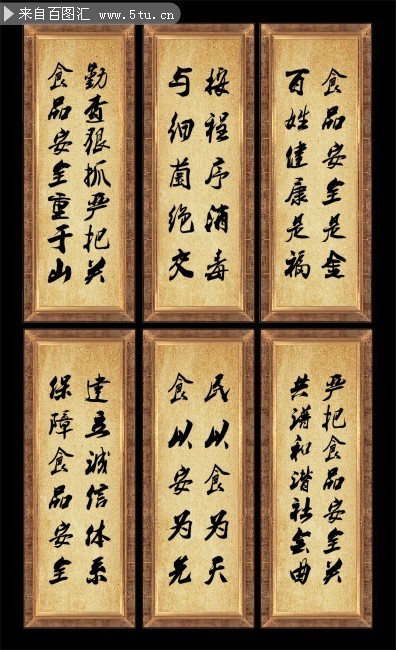 来自百图汇 www.5tu.cn
食品安全是金
百姓健康是福
按程序消毒
与细菌绝交
勤查狠抓严把关
食品安全重于山
严把食品安全关
共谱和谐社会曲
民以食为天
食以安为先
建立诚信体系
保障食品安全